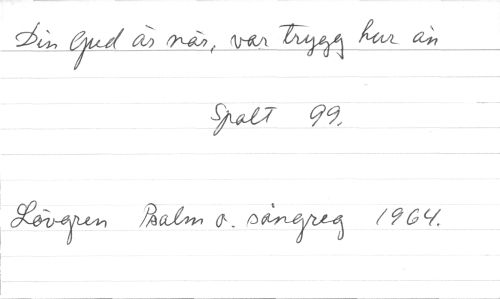 Din Gud är när, var trygg hur än
Spalt 99.
Lövgren Psalm o. sångreg 1964.